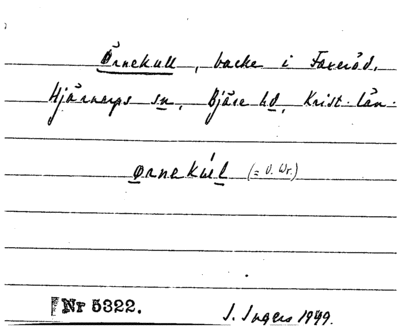 Örnekull, backe i Faxeröd,
Hjärnarps sn, Bjäre hd, Krist. län.
ørnekul (= v. Wr.)
Nr 5322. J. Ingers 1949.